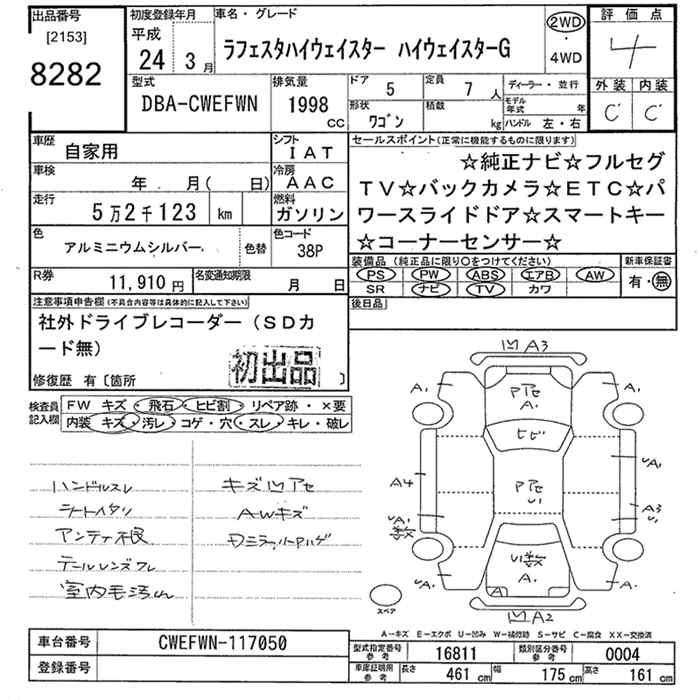 出品番号 [2153] 8282
初度登録年月 平成 24年 3月
車名・グレード ラフェスタハイウェイスター ハイウェイスターG
2WD・4WD
評価点 4
外装 C 内装 C
型式 DBA-CWEFWN
排気量 1998 CC
ドア 5
定員 7人
形状 ワゴン
積載 kg
ディーラー・並行
モデル年式 年
ハンドル 左・右
車歴 自家用
シフト IAT
車検 年 月( 日)
冷房 AAC
走行 5万2千123 km
燃料 ガソリン
色 アルミニウムシルバー 色替
色コード 38P
R券 11,910円
名変通知期限 月 日
セールスポイント(正常に機能するものに限ります)
☆純正ナビ☆フルセグ
TV☆バックカメラ☆ETC☆パ
ワースライドドア☆スマートキー
☆コーナーセンサー☆
装備品(純正品に限り○をつけてください)
PS PW ABS エアB AW
SR ナビ TV カワ
新車保証書 有・無
後日品
注意事項申告欄(不具合内容等は具体的に記入して下さい)
社外ドライブレコーダー(SDカ
ード無)
初出品
修復歴 有〔箇所 〕
検査員記入欄
FW キズ・飛石・ヒビ割・リペア跡・×要
内装 キズ・汚レ・コゲ・穴・スレ・キレ・破レ
ハンドルスレ
シートヘタリ
アンティ不良
テールレンズワレ
室内毛汚れ
キズ凹アセ
AWキズ
凹A3
A1 A1
Pアセ
A1
ヒビ
UA1
A4
Pアセ
U1
A3
U1
UA1
U1
A1
UA1 UA1
凹A2
スペア
A-キズ E-エクボ U-凹み W-補修跡 S-サビ C-腐食 XX-交換済
車台番号 CWEFWN-117050
登録番号
型式指定番号 参考 16811
類別区分番号 参考 0004
車庫証明用 参考 長さ 461cm 幅 175cm 高さ 161cm